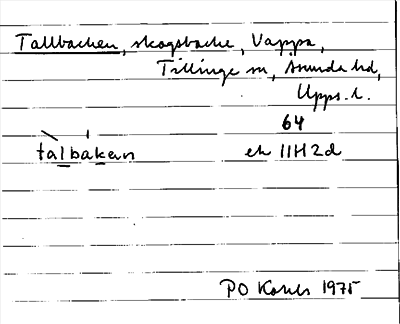 Tallbacken, skogsbacke, Vappa,
Tillinge sn, Åsunda hd,
Upps. l.
64
talbakɛn
ek 11H2d
PO 1975